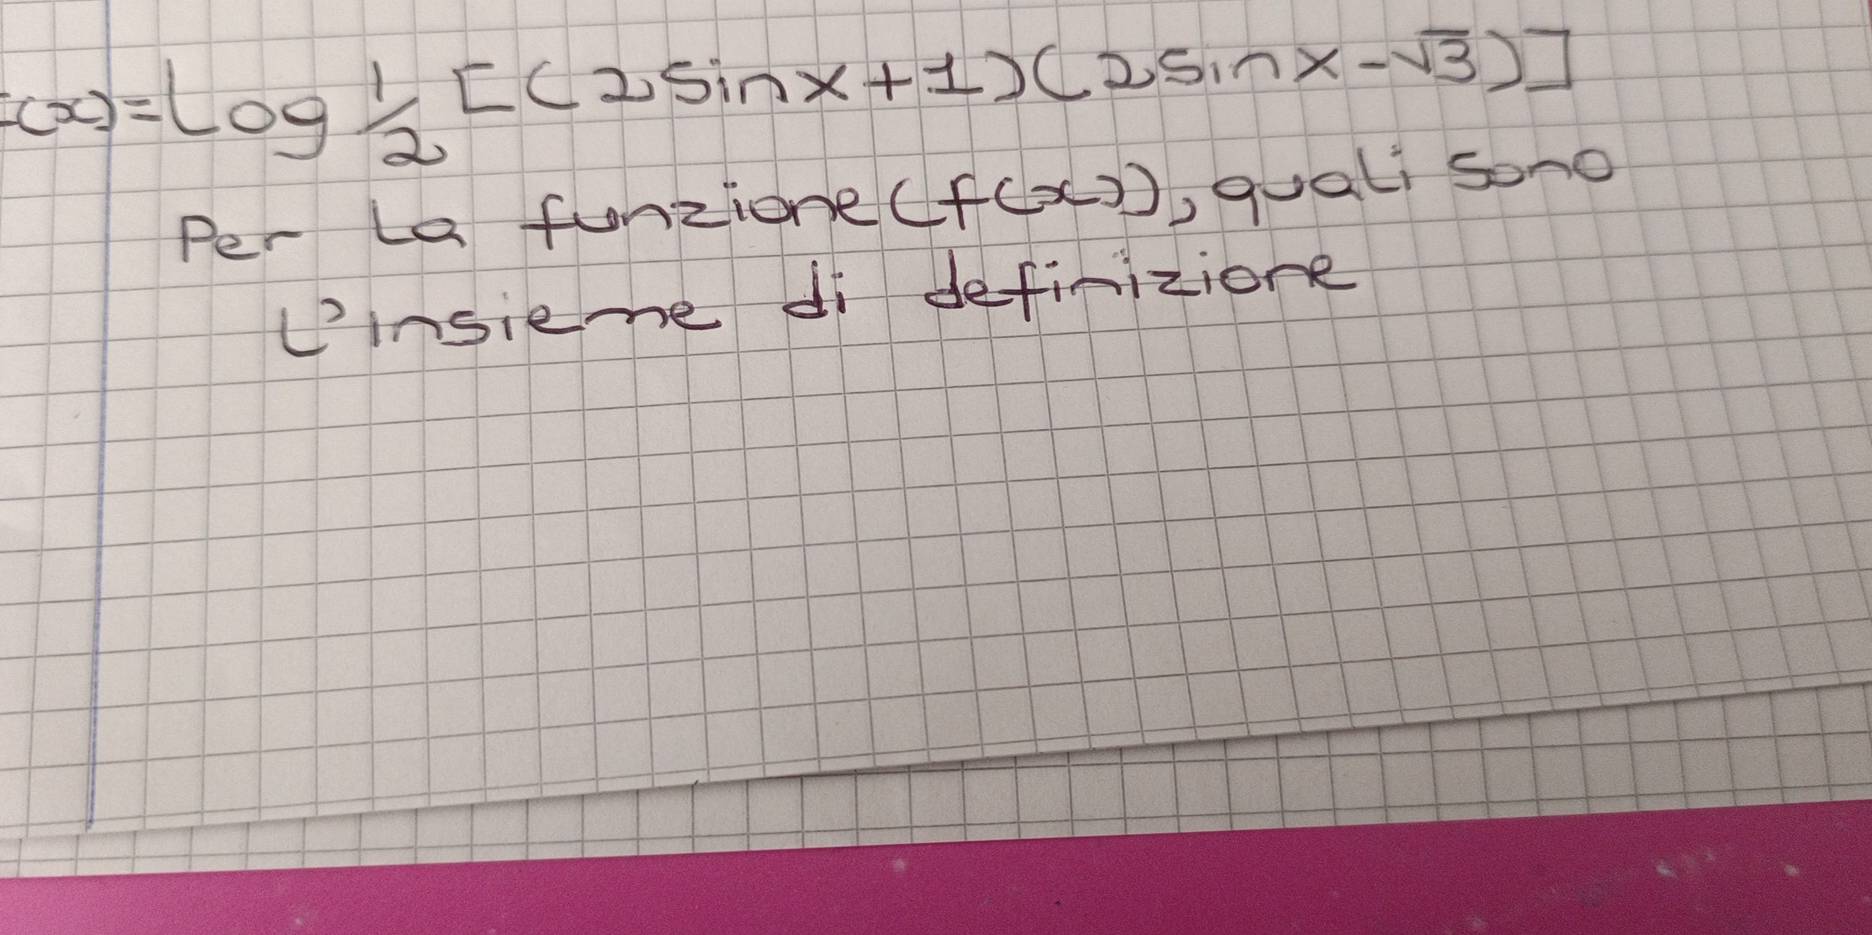 f(x)=log 1/2 [(2sinx+1)(2sinx-√3)]
Per la funzione (f(x)), quali sono
l'insieme di definizione